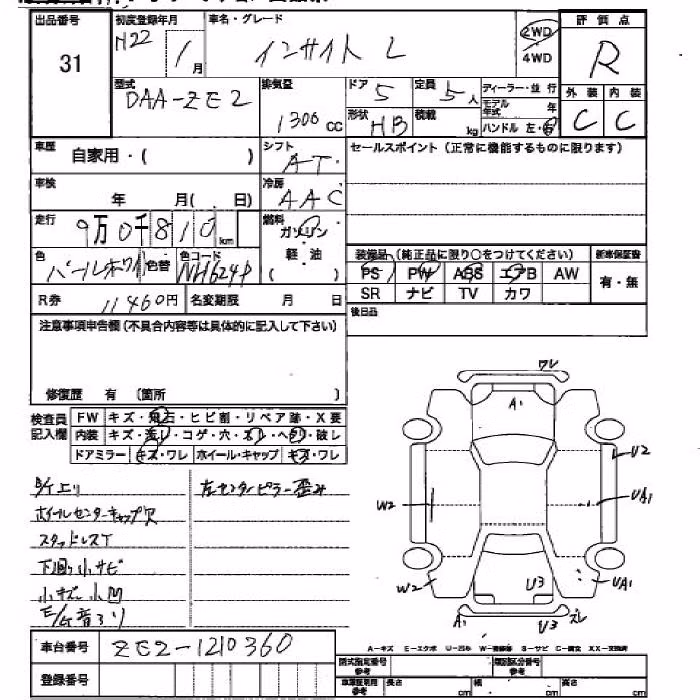 出品番号 初度登録年月 車名・グレード 評価点
31 H22 1月 インサイト L 2WD 4WD R
型式 DAA-ZE2 排気量 1300cc ドア 5 定員 5人 ディーラー・並行
形状 HB 積載 kg モデル年式 年 ハンドル 左・右
外装 内装
C C
車歴 自家用・( ) シフト AT
セールスポイント(正常に機能するものに限ります)
車検 年 月( 日) 冷房 AAC
走行 9万0千810km 燃料 ガソリン 軽・油 ( )
色 パールホワイト 色替 色コード NH624P
装備品(純正品に限り○をつけてください) 新車保証書
PS PW ABS エアB AW 有・無
SR ナビ TV カワ
R券 11460円 名変期限 月 日
後日品
注意事項申告欄(不具合内容等は具体的に記入して下さい)
修復歴 有 (箇所 )
検査員記入欄
FW キズ・飛石・ヒビ割・リペア跡・X要
内装 キズ・汚レ・コゲ・穴・スレ・ヘタリ・破レ
ドアミラー キズ・ワレ ホイール・キャップ キズ・ワレ
左センターピラー歪み
ホイールセンターキャップ欠
スタッドレスT
下廻り小サビ
小キズ小凹
E/G音あり
ワレ
A1
U2
UA1
W2
W2
U3
UA1
A1
U3
ズレ
車台番号 ZE2-1210360
登録番号
A-キズ E-エクボ U-凹み W-補修跡 S-サビ C-腐食 XX-交換済
型式指定番号 参考 類別区分番号 参考
車庫証明用 参考 長さ cm 幅 cm 高さ cm